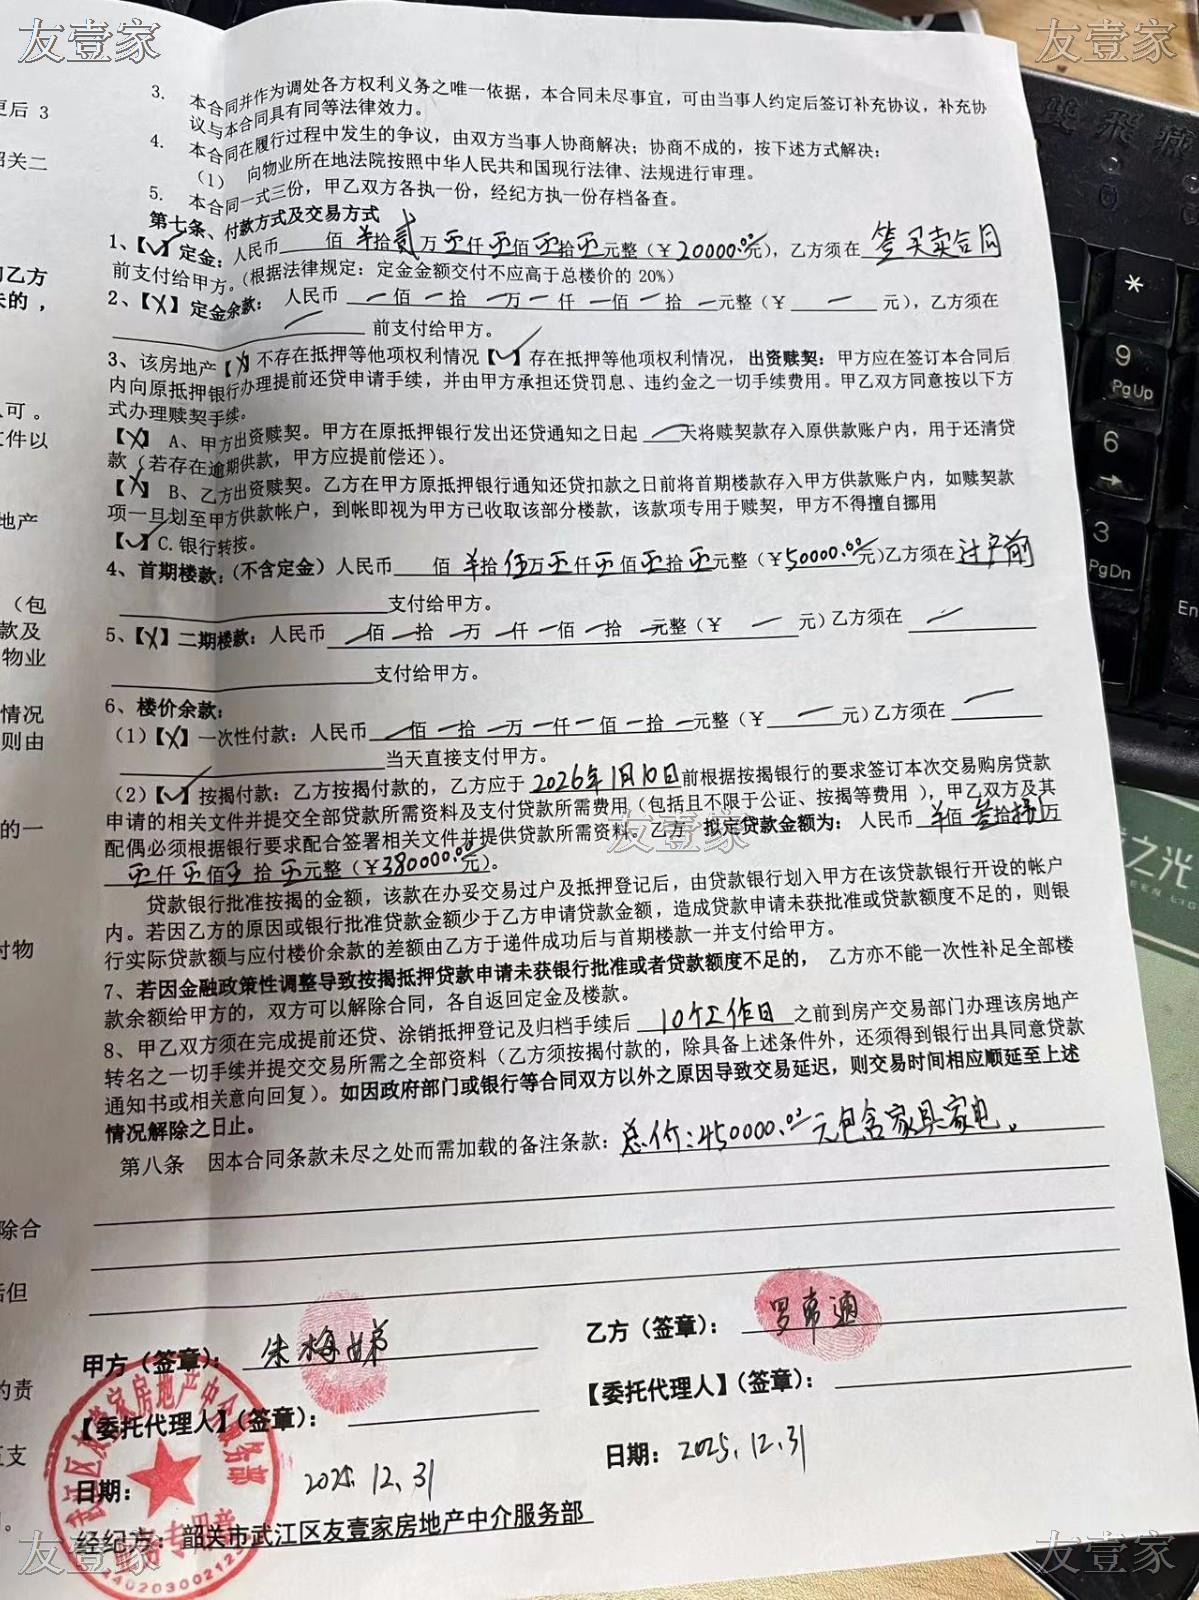 友壹家
友壹家
更后 3
韶关二
乙方
未的，
可。
件以
地产
（包
款及
物业
情况
则由
的一
付物
除合
后但
的责
支
3. 本合同并作为调处各方权利义务之唯一依据，本合同未尽事宜，可由当事人约定后签订补充协议，补充协
议与本合同具有同等法律效力。
4. 本合同在履行过程中发生的争议，由双方当事人协商解决；协商不成的，按下述方式解决：
（1） 向物业所在地法院按照中华人民共和国现行法律、法规进行审理。
5. 本合同一式三份，甲乙双方各执一份，经纪方执一份存档备查。
第七条、付款方式及交易方式
1、【√】定金：人民币 佰 拾贰万 仟 佰 拾 元整（￥20000.00元），乙方须在 签买卖合同
前支付给甲方。（根据法律规定：定金金额交付不应高于总楼价的 20%）
2、【X】定金余款： 人民币 一佰一拾一万一仟一佰一拾一元整（￥ 一 元），乙方须在
前支付给甲方。
3、该房地产【X】不存在抵押等他项权利情况【√】存在抵押等他项权利情况，出资赎契：甲方应在签订本合同后
内向原抵押银行办理提前还贷申请手续，并由甲方承担还贷罚息、违约金之一切手续费用。甲乙双方同意按以下方
式办理赎契手续。
【X】 A、甲方出资赎契。甲方在原抵押银行发出还贷通知之日起 一 天将赎契款存入原供款账户内，用于还清贷
款（若存在逾期供款，甲方应提前偿还）。
【X】 B、乙方出资赎契。乙方在甲方原抵押银行通知还贷扣款之日前将首期楼款存入甲方供款账户内，如赎契款
项一旦划至甲方供款帐户，到帐即视为甲方已收取该部分楼款，该款项专用于赎契，甲方不得擅自挪用
【√】C.银行转按。
4、首期楼款：（不含定金）人民币 佰 拾伍万 仟 佰 拾 元整（￥50000.00元）乙方须在过户前
支付给甲方。
5、【X】二期楼款：人民币 一佰一拾一万一仟一佰一拾一元整（￥ 一 元）乙方须在 一
支付给甲方。
6、楼价余款：
（1）【X】一次性付款：人民币一佰一拾一万一仟一佰一拾一元整（￥ 一 元）乙方须在 一
当天直接支付甲方。
（2）【√】按揭付款：乙方按揭付款的，乙方应于 2026年1月10日前根据按揭银行的要求签订本次交易购房贷款
申请的相关文件并提交全部贷款所需资料及支付贷款所需费用（包括且不限于公证、按揭等费用 ），甲乙双方及其
配偶必须根据银行要求配合签署相关文件并提供贷款所需资料。乙方 拟定贷款金额为： 人民币 佰叁拾捌万
仟 佰 拾 元整（￥380000.00元）。
友壹家
贷款银行批准按揭的金额，该款在办妥交易过户及抵押登记后，由贷款银行划入甲方在该贷款银行开设的帐户
内。若因乙方的原因或银行批准贷款金额少于乙方申请贷款金额，造成贷款申请未获批准或贷款额度不足的，则银
行实际贷款额与应付楼价余款的差额由乙方于递件成功后与首期楼款一并支付给甲方。
7、若因金融政策性调整导致按揭抵押贷款申请未获银行批准或者贷款额度不足的， 乙方亦不能一次性补足全部楼
款余额给甲方的，双方可以解除合同，各自返回定金及楼款。
8、甲乙双方须在完成提前还贷、涂销抵押登记及归档手续后 10个工作日 之前到房产交易部门办理该房地产
转名之一切手续并提交交易所需之全部资料（乙方须按揭付款的，除具备上述条件外，还须得到银行出具同意贷款
通知书或相关意向回复）。如因政府部门或银行等合同双方以外之原因导致交易延迟，则交易时间相应顺延至上述
情况解除之日止。
第八条 因本合同条款未尽之处而需加载的备注条款：总价：450000.00元包含家具家电。
甲方（签章）：朱梅娣
乙方（签章）：罗常通
【委托代理人】（签章）：
【委托代理人】（签章）：
日期： 2025.12.31
日期：2025.12.31
经纪方：韶关市武江区友壹家房地产中介服务部
武江区友壹家房地产中介服务部
服务专用章
*
9
PgUp
6
→
3
PgDn
En
之光
友壹家
友壹家